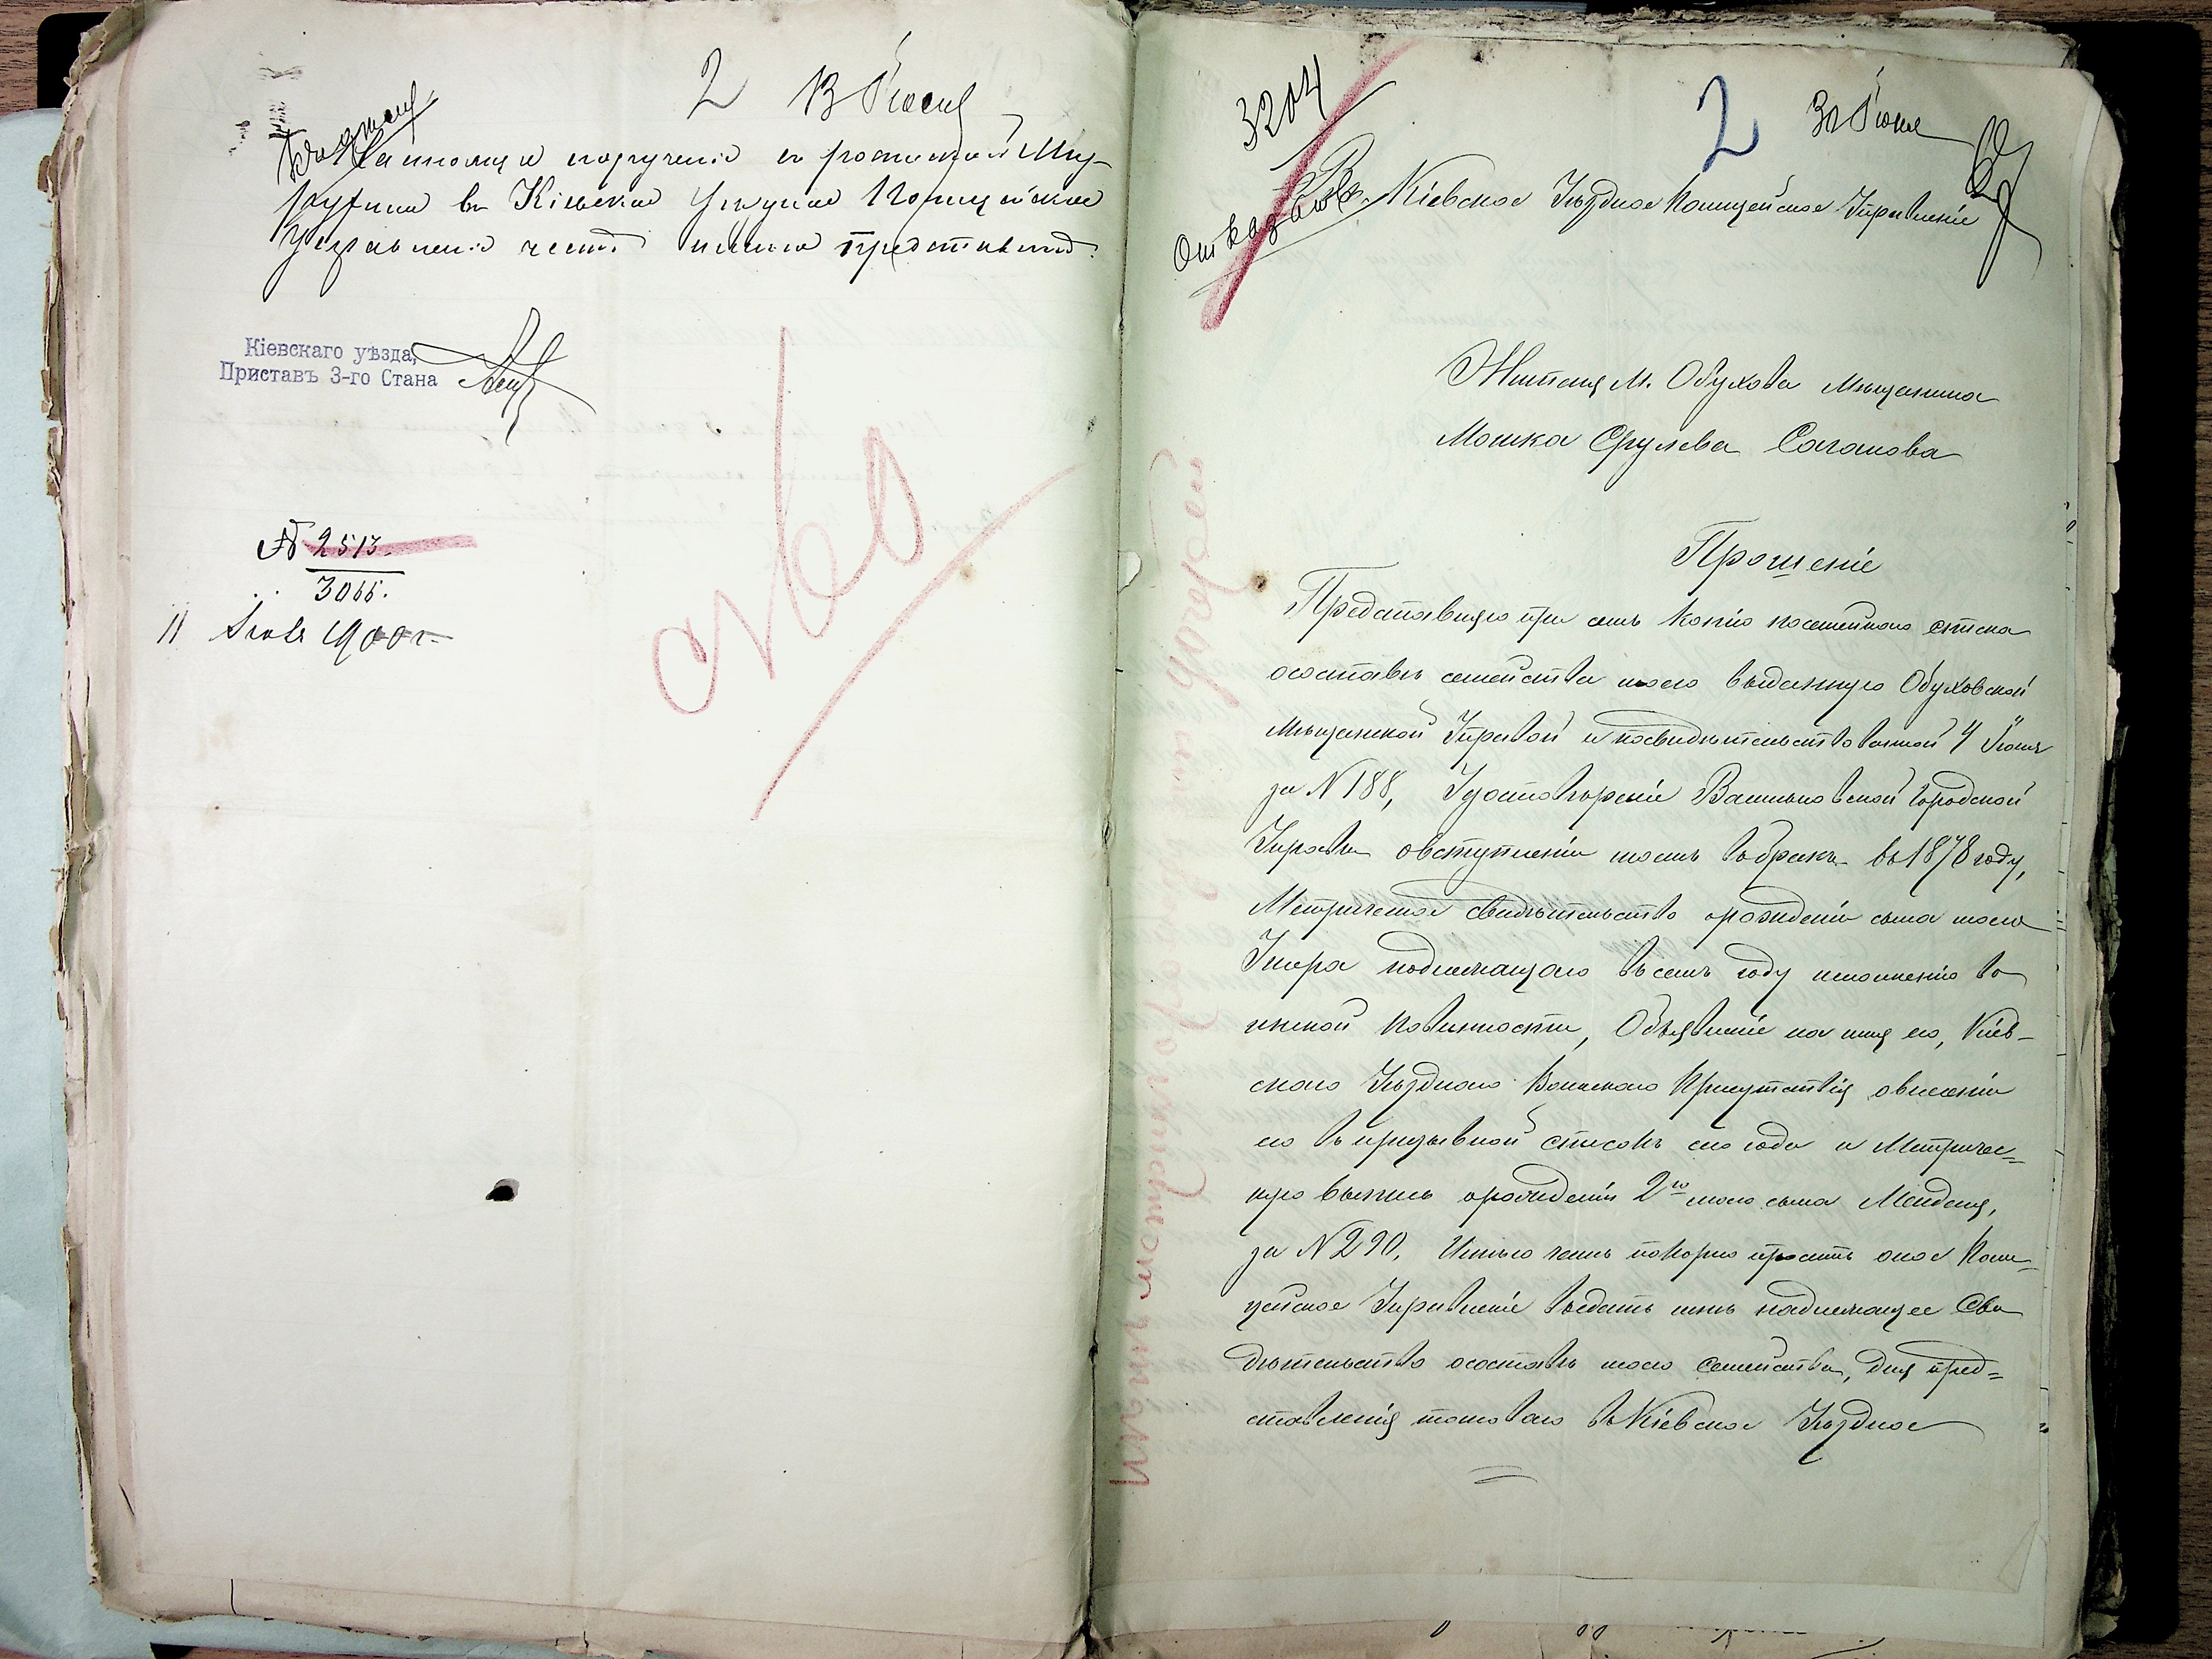 2 13 Июня
Настоящее порученіе съ роспиской Мирутина въ Кіевское Уѣздное Полицейское
Управленіе честь имѣю представить.
Кіевскаго уѣзда,
Приставъ 3-го Стана
№ 2513.
3066.
11 1900 г.
3204
2 30 Июня
Въ Кіевское Уѣздное Полицейское Управленіе
Жителя М. Обухова Мѣщанина
Мошка Срулева Саганова
Прошеніе
Представляю при семъ копію посемейнаго списка
осоставѣ семейства моего выданную Обуховской
Мѣщанской Управой и посвидѣтельствованной 4 Іюня
за N 188, Удостовѣреніе Васильковской Городской
Управы овступленіи моемъ вбракъ въ 1878 году,
Метрическое свидѣтельство орожденіи сына моего
подлежащаго въ семъ году исполненію во
инской повинности, Объявленіе на имя его, Кіев-
скаго Уѣзднаго Воинскаго Присутствія овнесеніи
его въ призывной списокъ сего года и Метричес=
кую выпись орожденіи 2го моего сына Менделя,
за N 290, Имѣю честь покорно просить оное Поли=
цейское Управленіе выдать мнѣ надлежащее Сви
дѣтельство осоставѣ моего семейства, для пред=
ставленія таковаго въ Кіевское Уѣздное